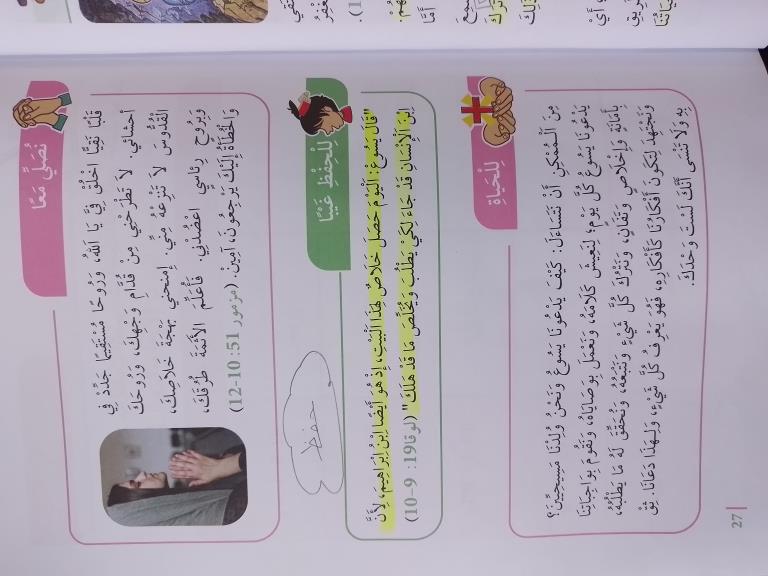 نُصَلِّي مَعًا
قَلْبًا نَقِيًّا اخْلُقْ فِيَّ يَا اَللهُ، وَرُوحًا مُسْتَقِيمًا جَدِّدْ فِي
أَحْشَائِي. لاَ تَطْرَحْنِي مِنْ قُدَّامِ وَجْهِكَ، وَرُوحَكَ
الْقُدُّوسَ لاَ تَنْزِعْهُ مِنِّي. اِمنَحْنِي بَهْجَةَ خَلاَصِكَ،
وَبِرُوحٍ رِئَاسِيٍّ اعْضُدْنِي. فَأُعَلِّمَ الأَثَمَةَ طُرُقَكَ،
وَالْخُطَاةُ إِلَيْكَ يَرْجِعُونَ، آمِينْ. (مزمور 51: 10-12)
لِلْحِفْظِ غَيْبًا
حفظ
"قَالَ يَسُوعُ: اَلْيَوْمَ حَصَلَ خَلاَصٌ لِهذَا الْبَيْتِ، إِذْ هُوَ أَيْضًا ابْنُ إِبْرَاهِيمَ، لِأَنَّ
ابْنَ الْإِنْسَانِ قَدْ جَاءَ لِكَيْ يَطْلُبَ وَيُخَلِّصَ مَا قَدْ هَلَكَ" (لوقا 19: 9-10)
لِلْحَيَاةِ
مِنَ الْمُمْكِنِ أَنْ نَتَسَاءَلَ: كَيْفَ يَدْعُونَا يَسُوعُ وَنَحْنُ وُلِدْنَا مَسِيحِيِّينَ؟
يَدْعُونَا يَسُوعُ كُلَّ يَوْمٍ؛ لِنَعِيشَ كَلَامَهُ، وَنَعْمَلَ بِوَصَايَاهُ، وَنَقُومَ بِوَاجِبَاتِنَا
بِأَمَانَةٍ وَإِخْلَاصٍ وَتَفَانٍ، وَنَتْرُكَ كُلَّ شَيْءٍ وَنَتْبَعَهُ، وَنُحَقِّقَ لَهُ مَا يَطْلُبُهُ،
وَنَجْتَهِدَ لِتَكُونَ أَفْكَارُنَا كَأَفْكَارِهِ، فَهُوَ يَعْرِفُ كُلَّ شَيْءٍ، وَلِهَذَا دَعَانَا. ثِقْ
بِهِ وَلَا تَنْسَى أَنَّكَ لَسْتَ وَحْدَكَ.
27